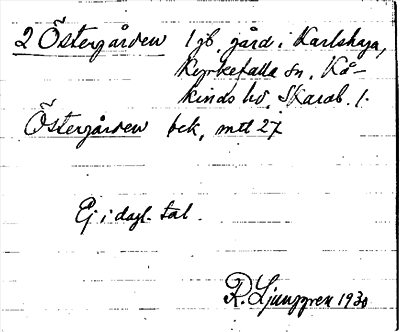 2 Östergården 1 gb, gård i Karlshaga,
Kyrkefalla sn, Kå-
kinds hd, Skarab. l.
Östergården bek, mtl 27
Ej i dagl. tal.
R. Ljunggren 1930